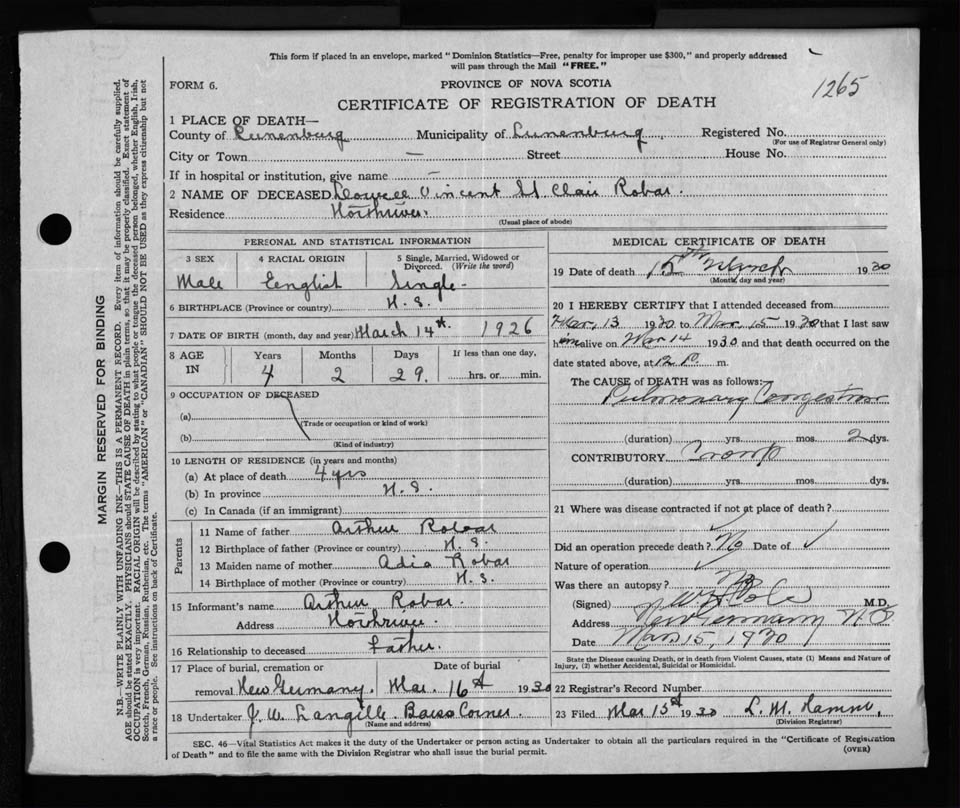 This form if placed in an envelope, marked "Dominion Statistics—Free, penalty for improper use $300," and properly addressed
will pass through the Mail "FREE."
FORM 6.
PROVINCE OF NOVA SCOTIA
1265
CERTIFICATE OF REGISTRATION OF DEATH
1 PLACE OF DEATH—
County of Lunenburg Municipality of Lunenburg Registered No.
(For use of Registrar General only)
City or Town — Street House No.
If in hospital or institution, give name —
2 NAME OF DECEASED Vincent St Clair Robar.
Residence
(Usual place of abode)
PERSONAL AND STATISTICAL INFORMATION
3 SEX 4 RACIAL ORIGIN 5 Single, Married, Widowed or
Divorced. (Write the word)
Male English Single
6 BIRTHPLACE (Province or country) N. S.
7 DATE OF BIRTH (month, day and year) March 14th. 1926
8 AGE IN Years Months Days If less than one day,
4 2 29. hrs. or min.
9 OCCUPATION OF DECEASED
(a)
(Trade or occupation or kind of work)
(b)
(Kind of industry)
10 LENGTH OF RESIDENCE (in years and months)
(a) At place of death 4 yrs
(b) In province N. S.
(c) In Canada (if an immigrant)
Parents
11 Name of father Arthur Robar
12 Birthplace of father (Province or country) N. S.
13 Maiden name of mother Adia Robar
14 Birthplace of mother (Province or country) N. S.
15 Informant's name Arthur Robar.
Address
16 Relationship to deceased Father.
17 Place of burial, cremation or Date of burial
removal New Germany. Mar. 16th 1930
18 Undertaker J. W. Langille Barss Corner.
(Name and address)
MEDICAL CERTIFICATE OF DEATH
19 Date of death 15th March 1930
(Month, day and year)
20 I HEREBY CERTIFY that I attended deceased from
Mar, 13 1930 to Mar 15 1930 that I last saw
him alive on Mar 14 1930 and that death occurred on the
date stated above, at 12 P. m.
The CAUSE of DEATH was as follows:
Pulmonary Congestion
(duration) yrs. mos. 2 dys.
CONTRIBUTORY Croup
(duration) yrs. mos. dys.
21 Where was disease contracted if not at place of death?
Did an operation precede death? No Date of
Nature of operation
Was there an autopsy? No
(Signed) Cole M.D.
Address New Germany N S
Date Mar 15, 1930
State the Disease causing Death, or in death from Violent Causes, state (1) Means and Nature of
Injury, (2) whether Accidental, Suicidal or Homicidal.
22 Registrar's Record Number
23 Filed Mar 15th 1930 L. M.
(Division Registrar)
SEC. 46—Vital Statistics Act makes it the duty of the Undertaker or person acting as Undertaker to obtain all the particulars required in the "Certificate of Registration
of Death" and to file the same with the Division Registrar who shall issue the burial permit.
(OVER)
MARGIN RESERVED FOR BINDING
N.B.—WRITE PLAINLY WITH UNFADING INK—THIS IS A PERMANENT RECORD. Every item of information should be carefully supplied.
AGE should be stated EXACTLY. PHYSICIANS should STATE CAUSE OF DEATH in plain terms, so that it may be properly classified. Exact statement of
OCCUPATION is very important. RACIAL ORIGIN will be described by stating to what people or tongue the deceased person belonged, whether English, Irish,
Scotch, French, German, Russian, Ruthenian, etc. The terms "AMERICAN" or "CANADIAN" SHOULD NOT BE USED as they express citizenship but not
a race or people. See instructions on back of Certificate.